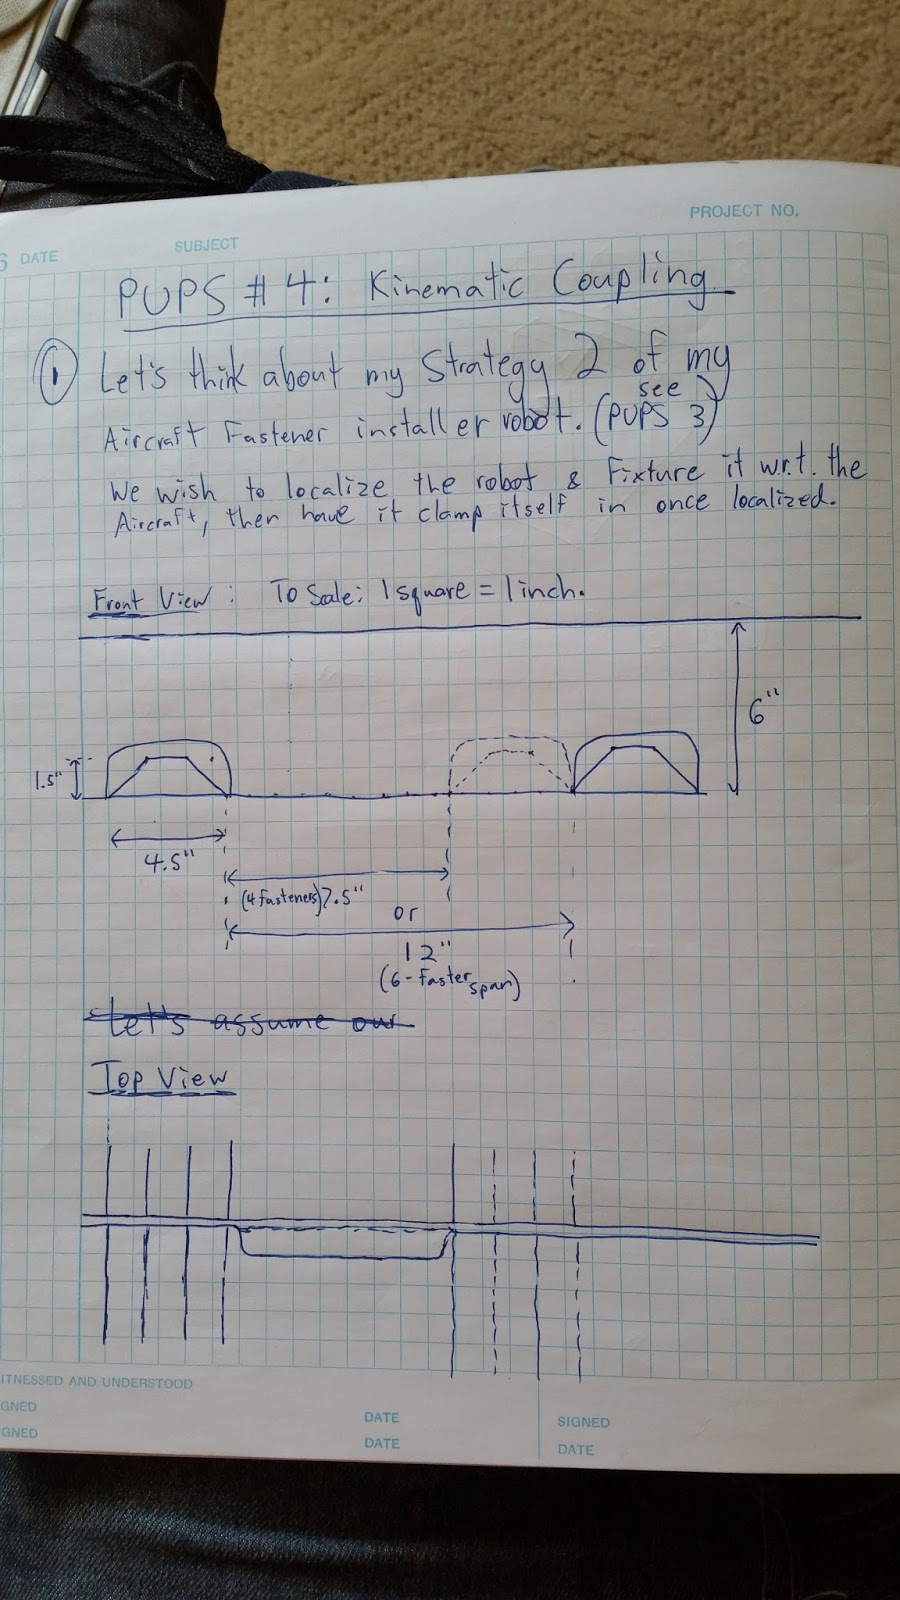 PROJECT NO.
6 DATE SUBJECT
PUPS #4: Kinematic Coupling
1 Let's think about my Strategy 2 of my
see
Aircraft Fastener installer robot. (PUPS 3)
We wish to localize the robot & Fixture it w.r.t. the
Aircraft, then have it clamp itself in once localized.
Front View: To Scale: 1 square = 1 inch.
6"
1.5"
4.5"
(4 fasteners) 7.5"
or
12"
(6-faster span)
Let's assume our
Top View
ITNESSED AND UNDERSTOOD
GNED DATE SIGNED
GNED DATE DATE